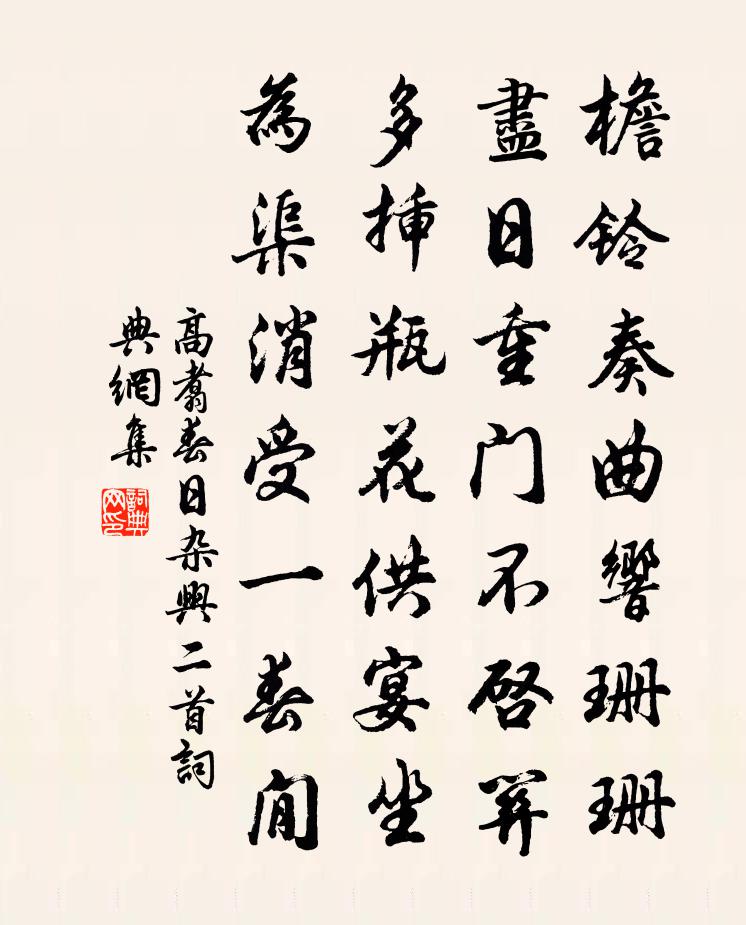 檐鈴奏曲響珊珊
盡日重門不啓關
多揷瓶花供宴坐
為渠消受一春閒
高翥春日杂興二首詞
典網集
詞典网印